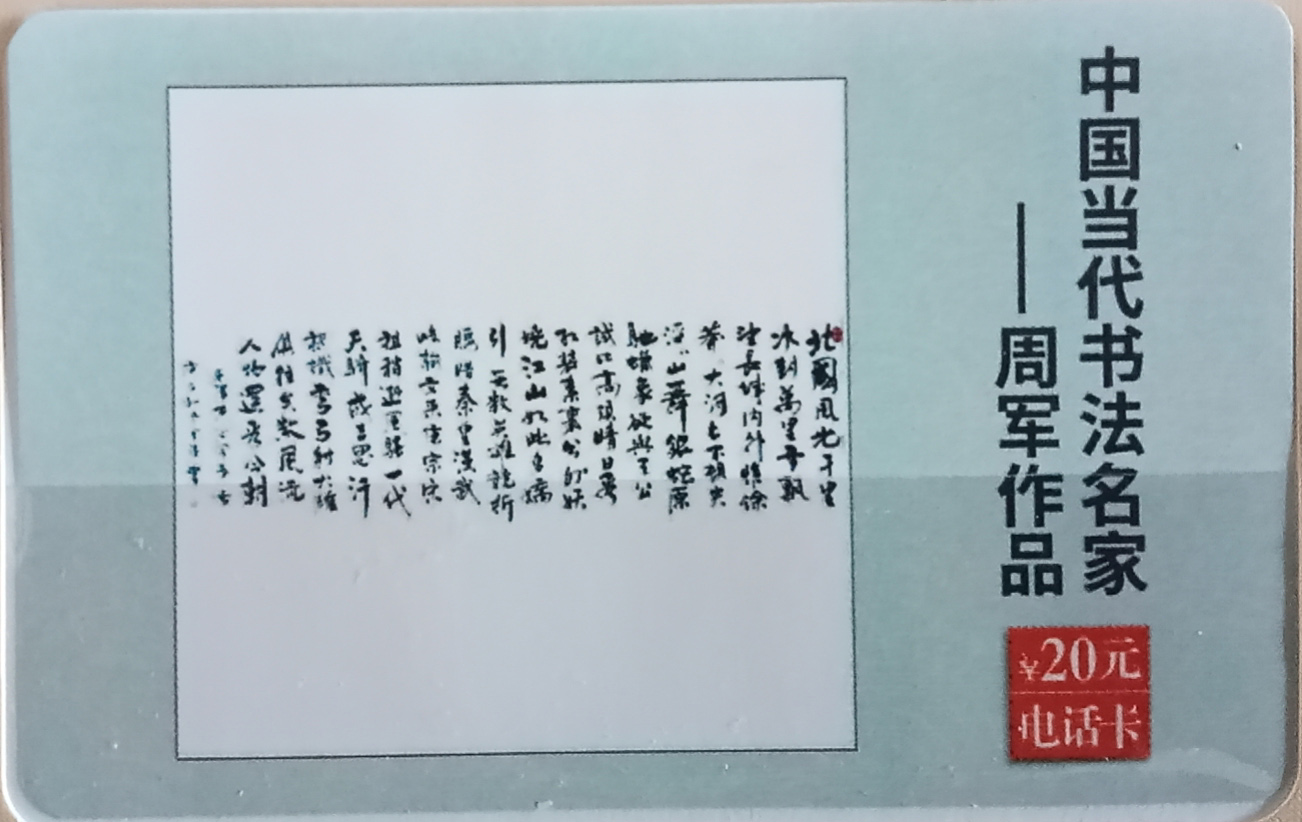 中国当代书法名家
——周军作品
¥20元
电话卡
北國風光千里
冰封萬里雪飄
望長城内外惟餘
莽〻大河上下頓失
滔〻山舞銀蛇原
馳蠟象欲與天公
試比高須晴日看
紅裝素裹分外妖
嬈江山如此多嬌
引無數英雄競折
腰惜秦皇漢武
略輸文采唐宗宋
祖稍遜風騷一代
天驕成吉思汗
祇識彎弓射大雕
俱往矣數風流
人物還看今朝